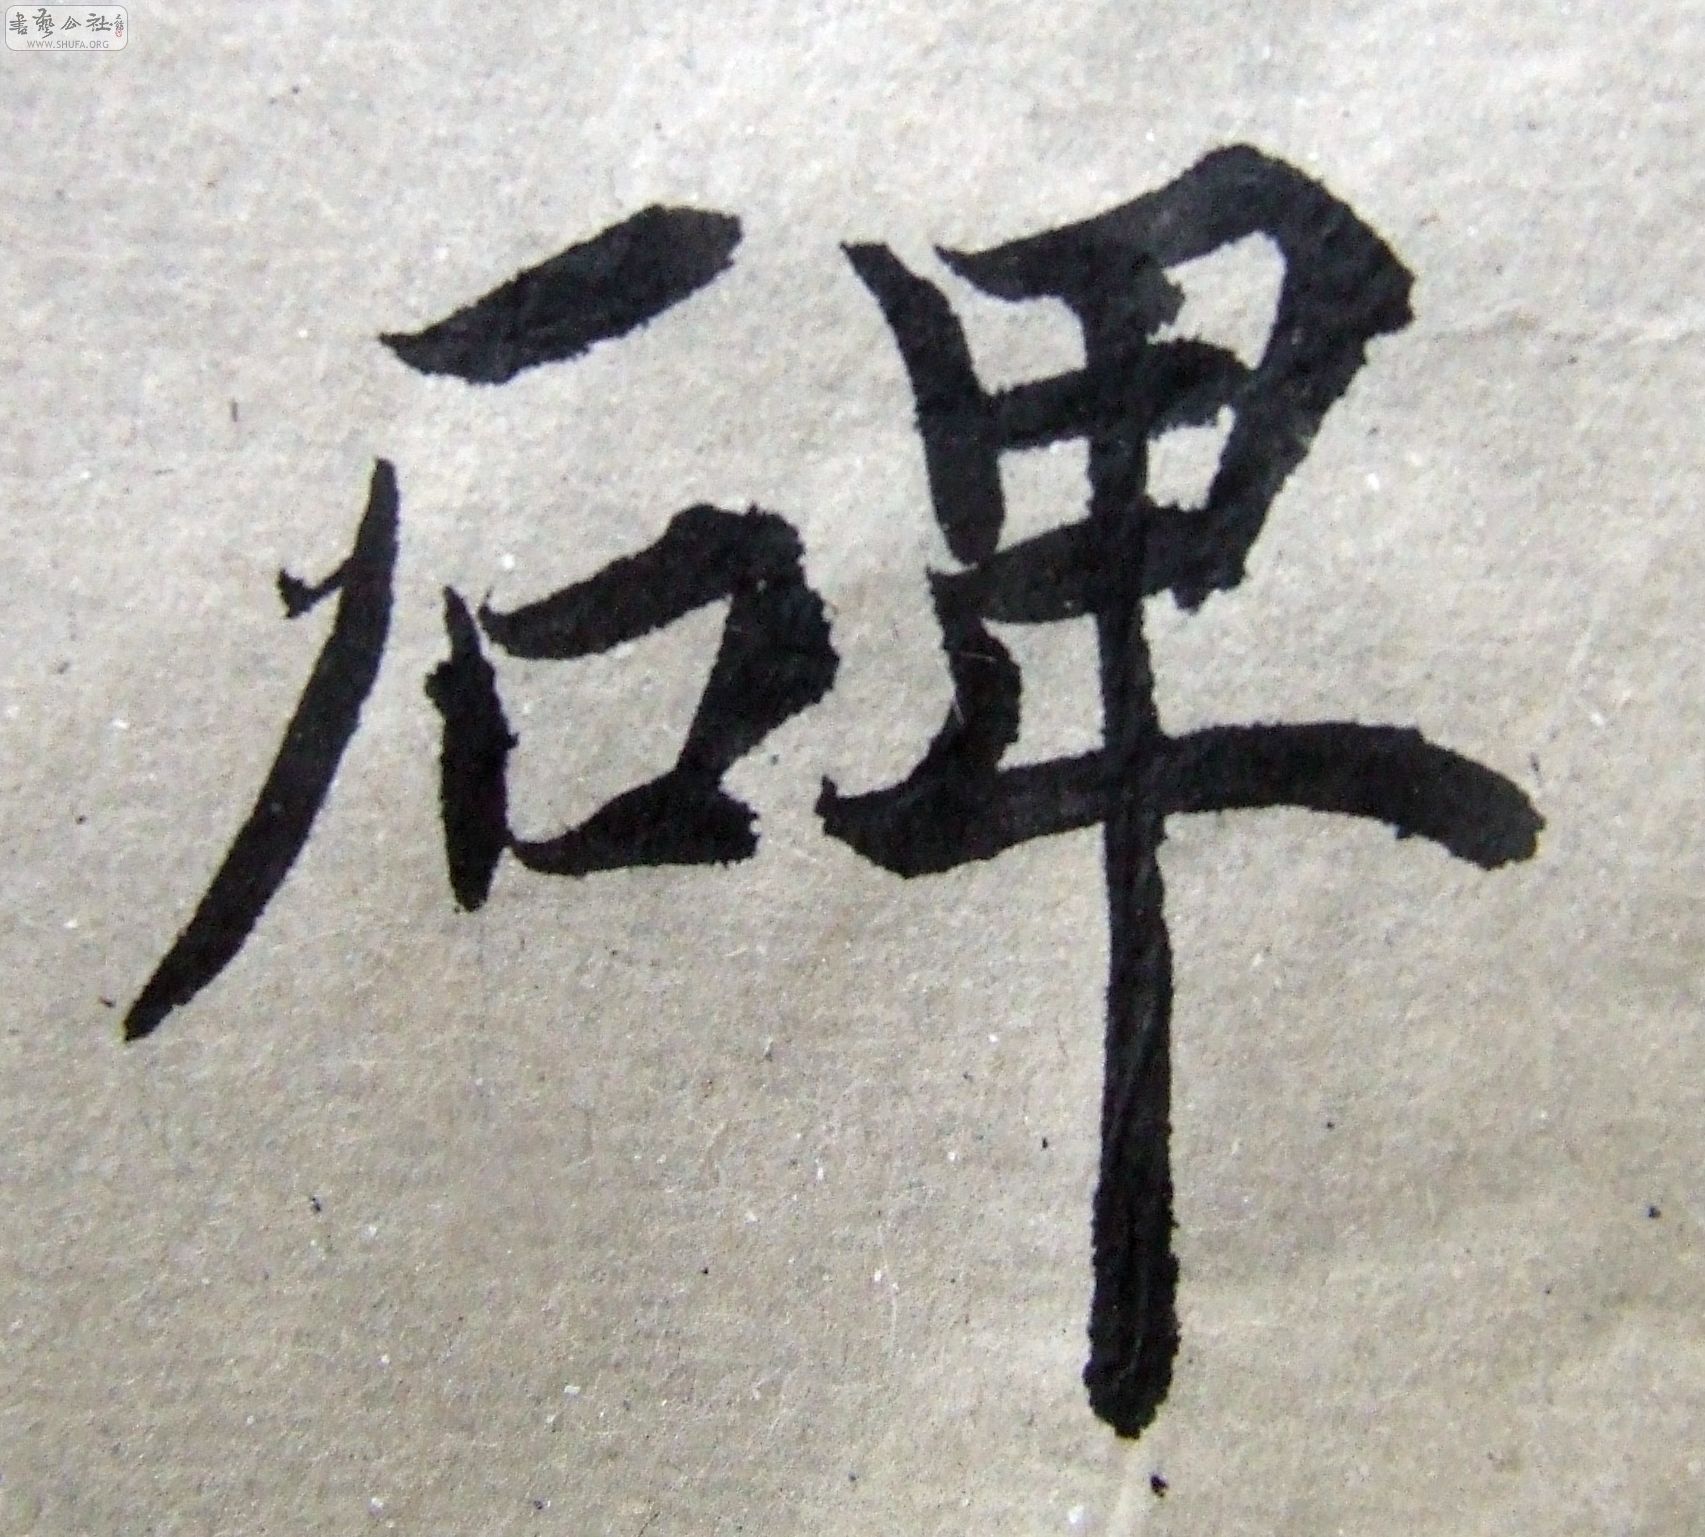 書藝公社
WWW.SHUFA.ORG
碑